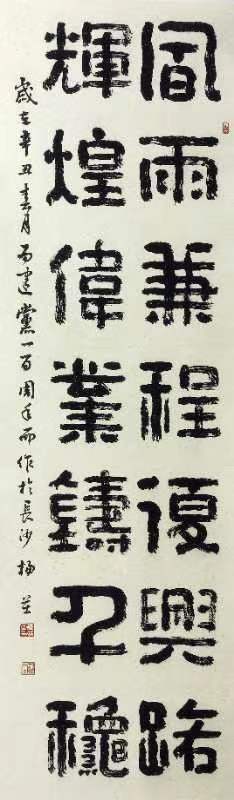 風雨兼程復興路
輝煌偉業鑄穩
歲在辛丑春月為建黨一百周年而作於長沙